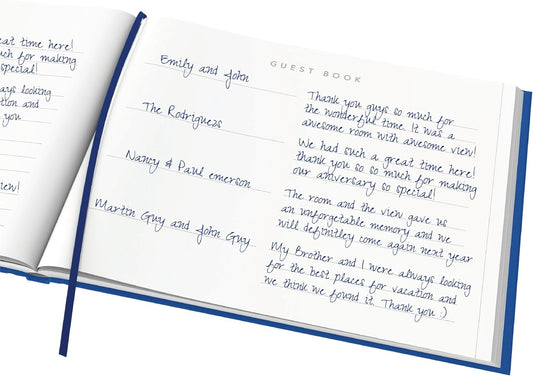 eat time here!
uch for making
special!
ays looking
tion and
you
iew!
GUEST BOOK
Emily and John
Thank you guys so much for
the wonderful time. It was a
awesome room with awesome view!
The Rodriguezs
We had such a great time here!
thank you so so much for making
our aniversary so special!
Nancy & Paul emerson
The room and the view gave us
an unforgetable memory and we
will definitley come again next year
Martin Guy and John Guy
My Brother and I were always looking
for the best places for vacation and
we think we found it. Thank you :)